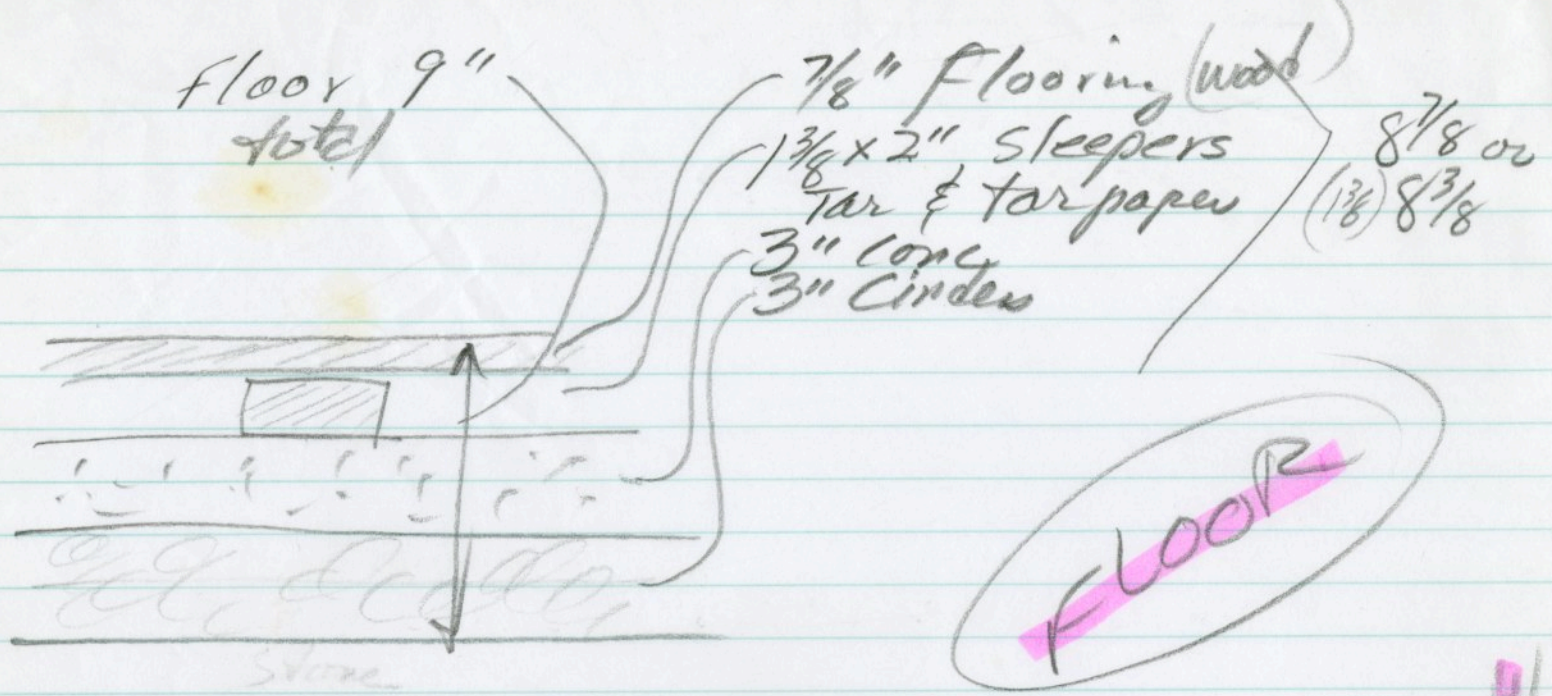 Floor 9"
total
7/8" Flooring (wood)
1 3/8 x 2" Sleepers
Tar & tarpaper
3" conc
3" Cinders
8 7/8 or
(1 3/8) 8 3/8
FLOOR
stone